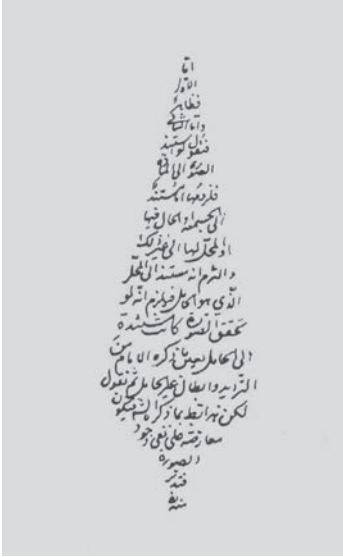 اما
الاول
فظاهر
واما الثانى
فنقول لو استند
الصورة الى المادة
فلزومها استند
الى الجسمية او الحال فيها
او المحل لها الى غير ذلك
والتزم انه مستند الى المحل
الذى هو الحامل فيلزم انه لو
تحقق الصورة كانت مستندة
الى الحامل بعين ما ذكره الامام من
الترديد وابطال غير الحامل ثم نقول
لكن نهى ما ذكر فيكون
معارضة على نفى وجود
الصورة
فتدبر
منه